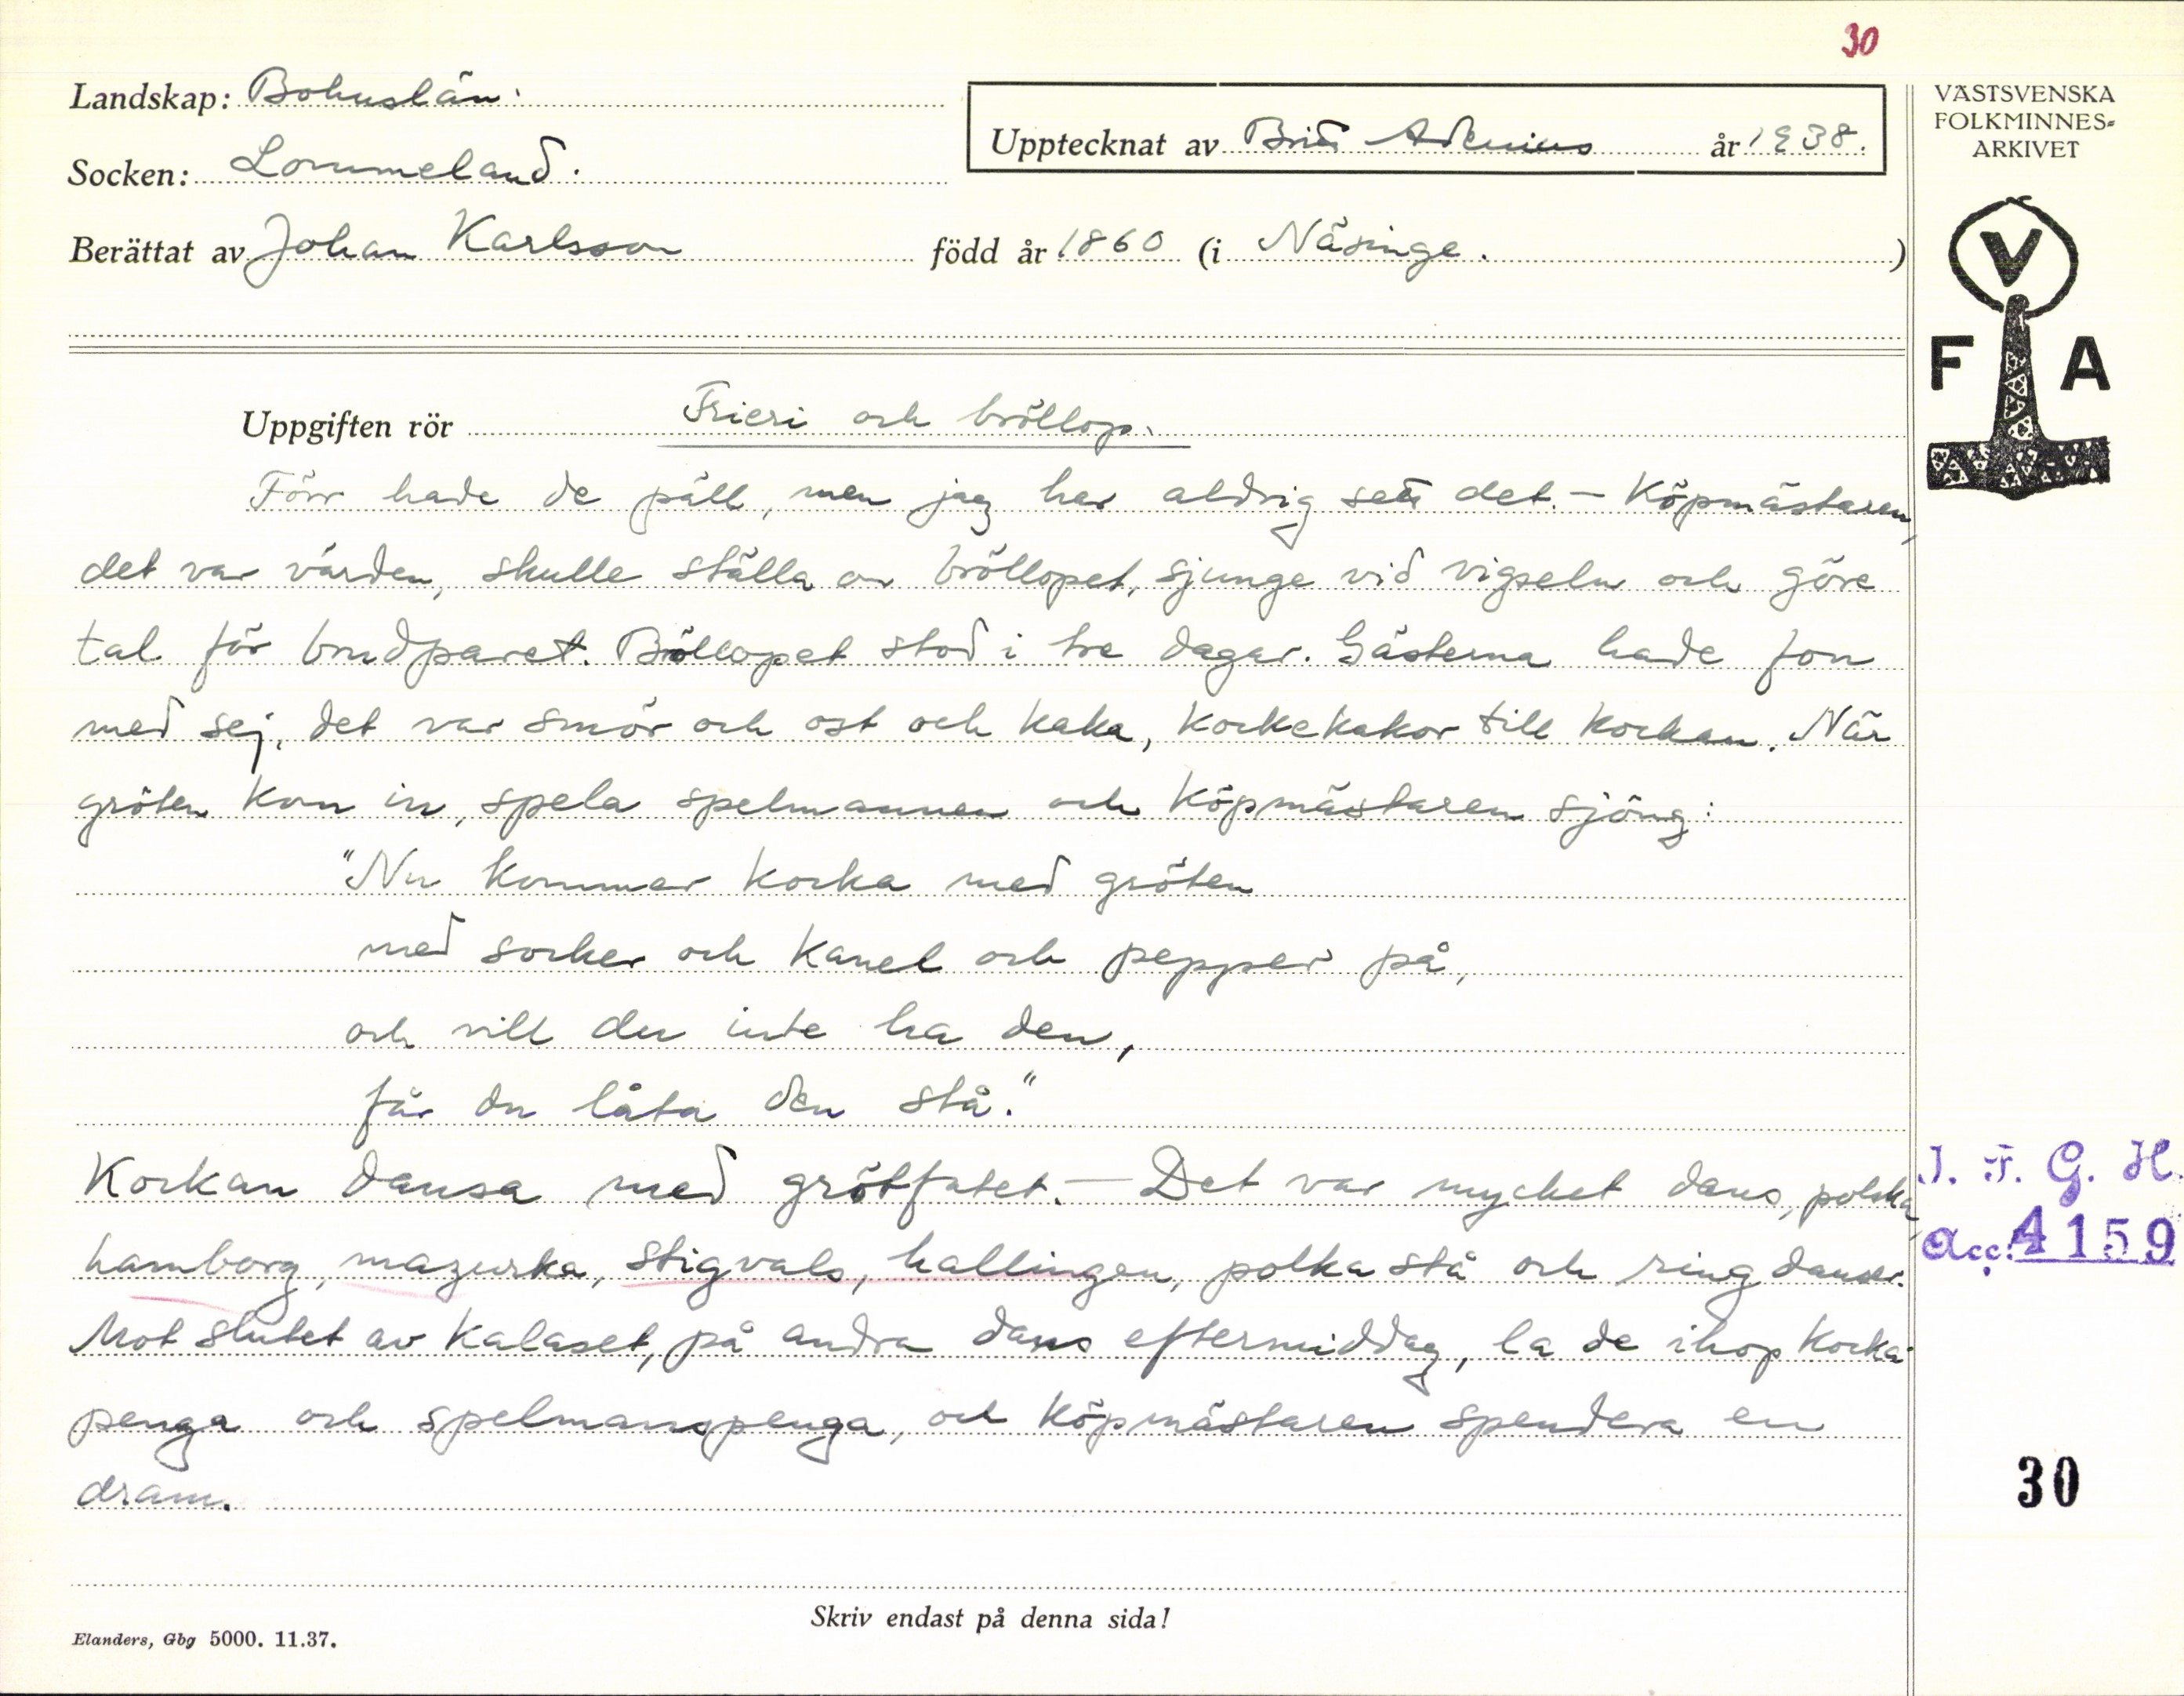 30
Landskap: Bohuslän.
Socken: Lommeland.
Berättat av Johan Karlsson född år 1860 (i Näsinge.)
Upptecknat av Brita år 1938.
VÄSTSVENSKA
FOLKMINNES-
ARKIVET
V
F A
Uppgiften rör Frieri och bröllop.
Förr hade de päll, men jag har aldrig sett det. – Köpmästaren,
det var värden, skulle ställa om bröllopet, sjunga vid vigseln och göra
tal för brudparet. Bröllopet stod i tre dagar. Gästerna hade
med sej, det var smör och ost och kaka, kockekakor till kockan. När
gröten kom in, spela spelmannen och köpmästaren sjöng:
"Nu kommer kocka med gröten
med socker och kanel och pepper på,
och vill du inte ha den,
får du låta den stå."
Kockan dansa med grötfatet. – Det var mycket dans, polska,
hamborg, mazurka, stigvals, hallingen, polka stå och ringdanser.
Mot slutet av kalaset, på andra dans eftermiddag, la de ihop kocka-
penga och spelmanspenga, och köpmästaren spendera en
dram.
I. F. G. H.
Acc. 4159
30
Skriv endast på denna sida!
Elanders, Gbg 5000. 11.37.